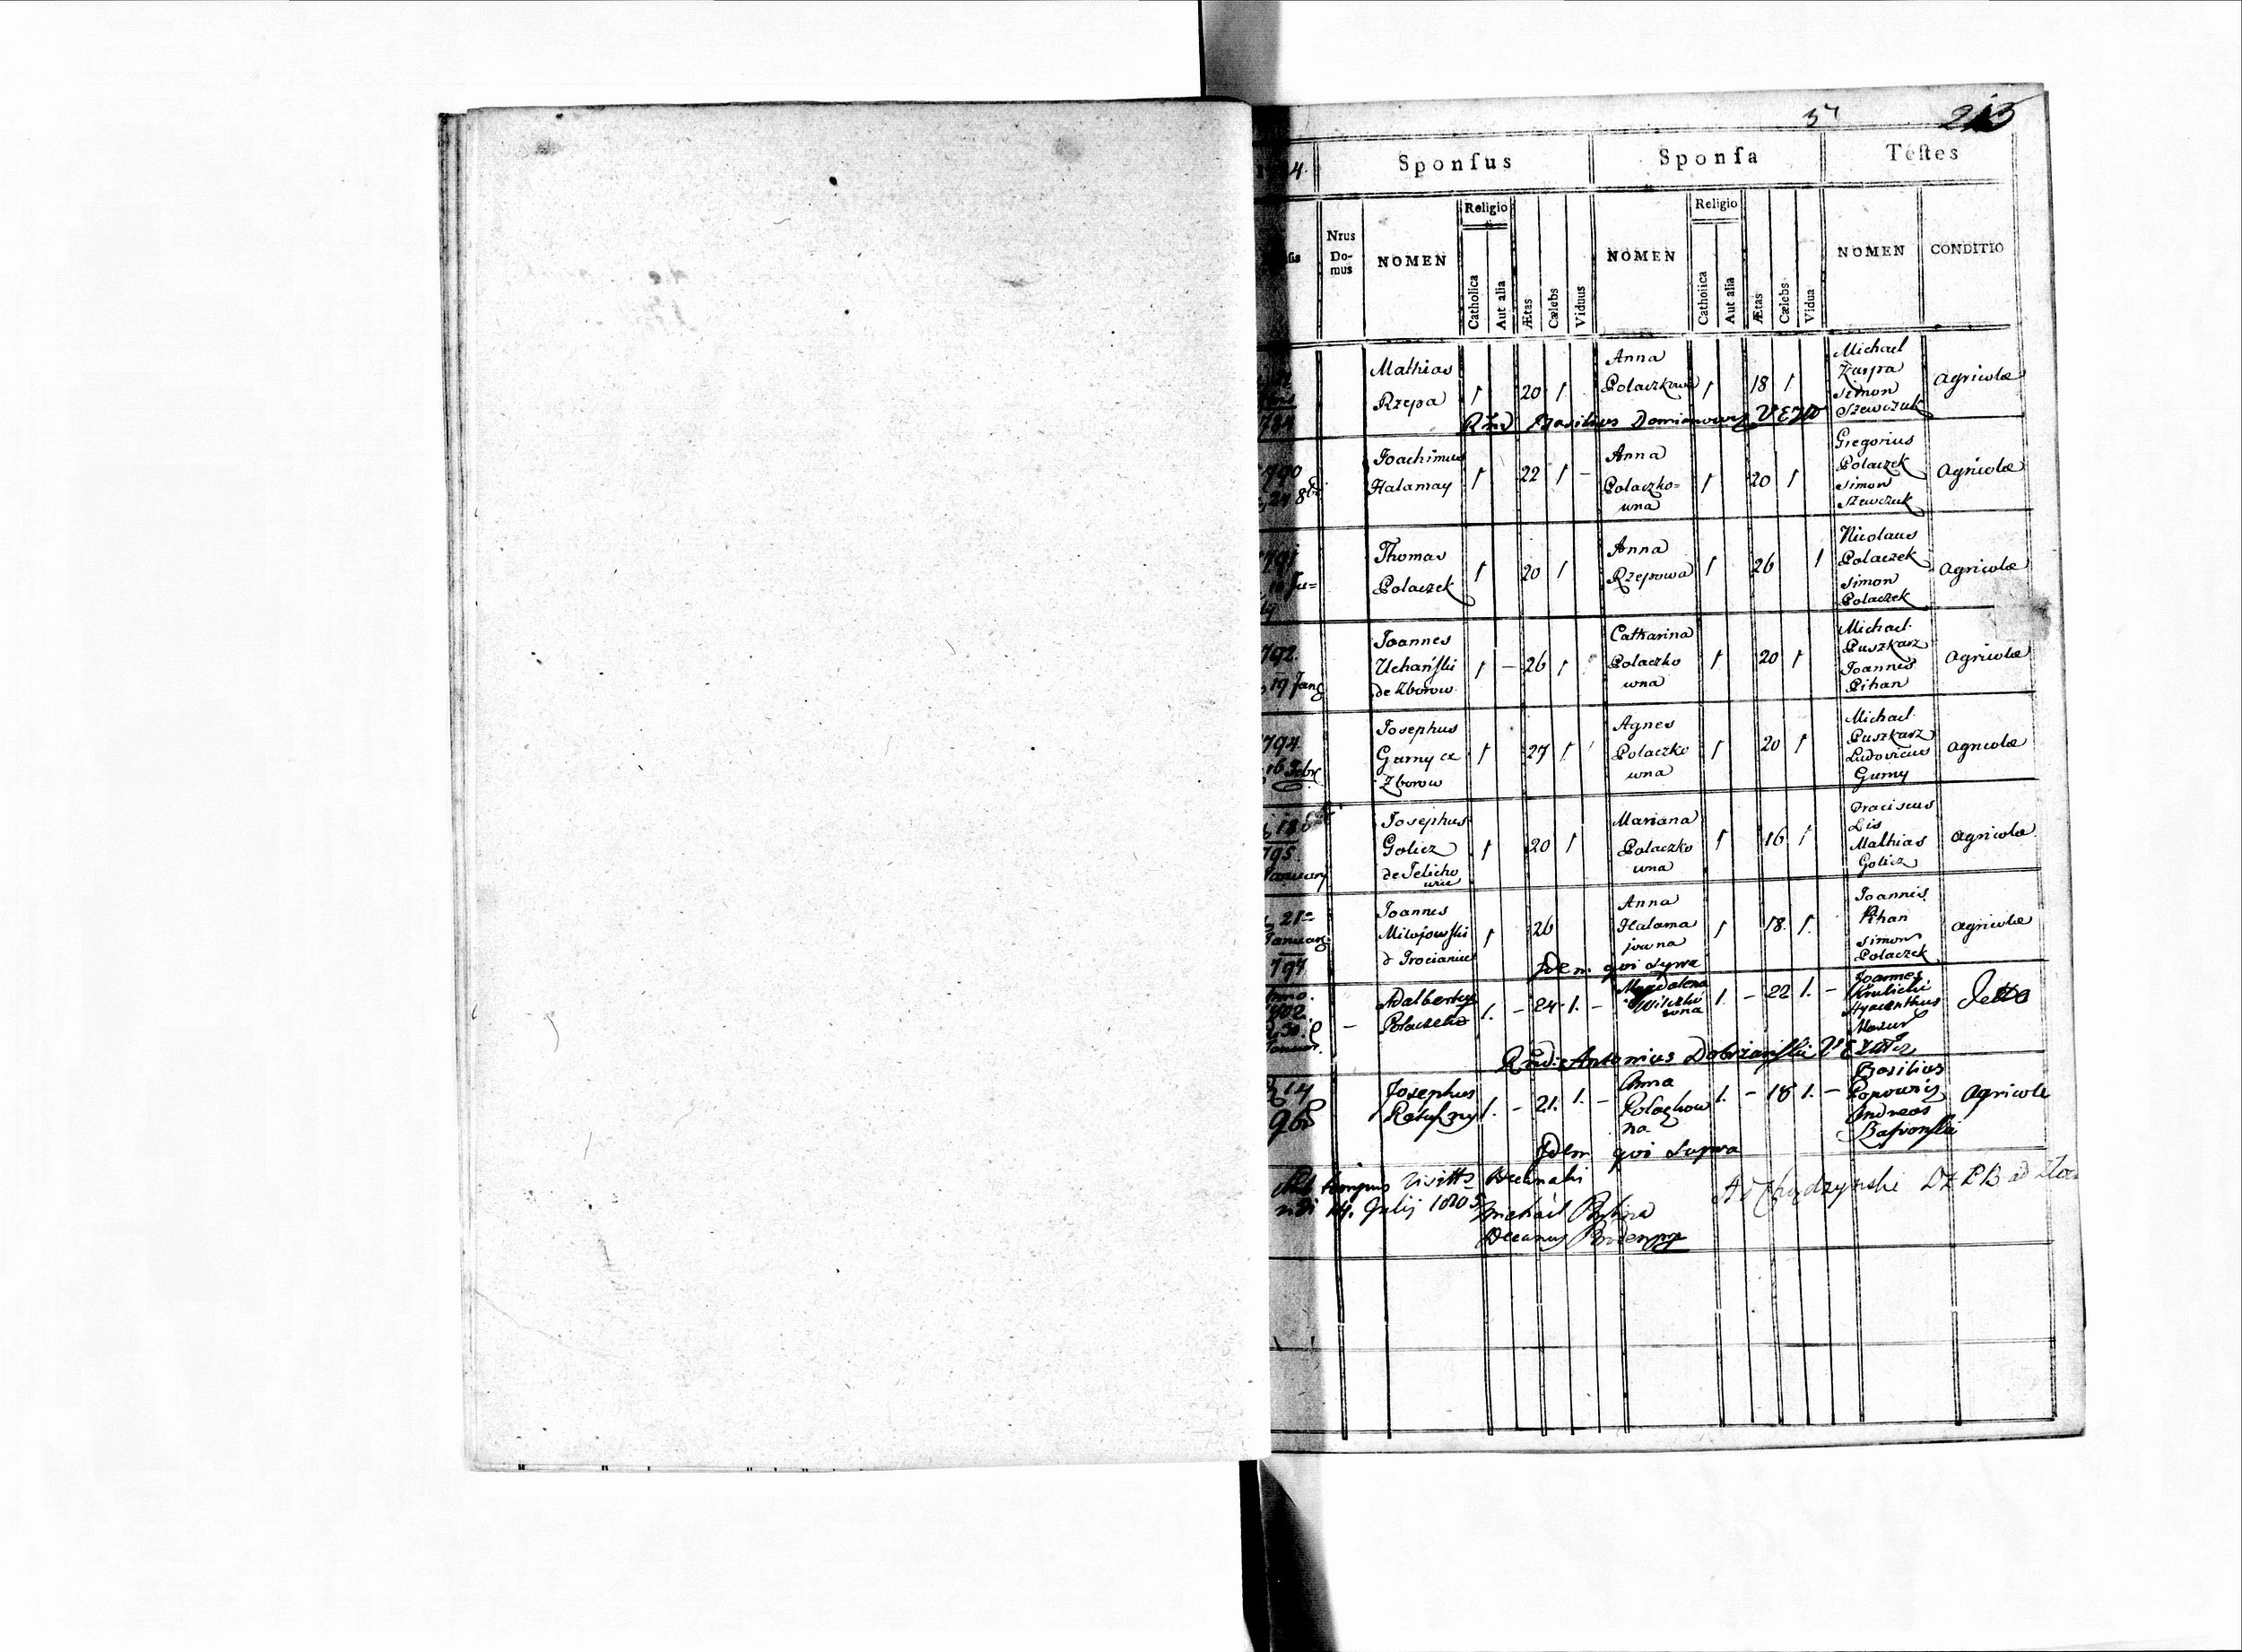 37 213
4. Sponſus Sponſa Teſtes
Nrus Do- mus NOMEN Religio Catholica Aut alia Ætas Cælebs Viduus NOMEN Religio Catholica Aut alia Ætas Cælebs Vidua NOMEN CONDITIO
Mathias
Rzepa
1 20 1
Anna
Polaczkowa
1 18 1
Michael
Kaspra
Simon
Szewczuk
Agricolæ
Rnd Basilius
790
24 8bris
Joachimus
Halamay
1 22 1 -
Anna
Polaczko=
wna
1 20 1
Gregorius
Polaczek
Simon
Szewczuk
Agricolæ
791
16 Ju=
ly
Thomas
Polaczek
1 20 1
Anna
Rzepowa
1 26 1
Nicolaus
Polaczek
Simon
Polaczek
Agricolæ
792.
19 Jan
Joannes
Uchańſki
de Zborow
1 - 26 1
Catharina
Polaczko
wna
1 20 1
Michael
Puszkarz
Joannes
Pihan
Agricolæ
794.
16 Febr
Josephus
Gurny ex
Zborow
1 27 1
Agnes
Polaczko
wna
1 20 1
Michael
Puszkarz
Ludovicus
Gurny
Agricolæ
18
795.
Januarij
Josephus
Golicz
de Jelicho
wie
1 20 1
Mariana
Polaczko
wna
1 16 1
Lis
Mathias
Golicz
Agricolæ
21
Januar
797
Joannes
Milojowſki
d Trocianiec
1 26
Anna
Halama
jowna
1 18. 1.
Joannes
Pihan
Simon
Polaczek
Agricolæ
Idem qui supra
Anno.
802.
30.
Januar.
- Adalbertus
Polaczek
1. - 24 1. -
Magdalena
1. - 22 1. -
Joannes
Krulicki
Hyacinthus
Mazur
Detto
Rnd: Antonius Dobrzańſki
14
9br
Josephus
1. - 21. 1. -
Anna
Polaczkow
na
1. - 18 1. -
Basilius
Popowicz
Andreas
Agricole
Idem qui supra
tempus Decanalis
14. Julij 1805
Michaël
Decanus